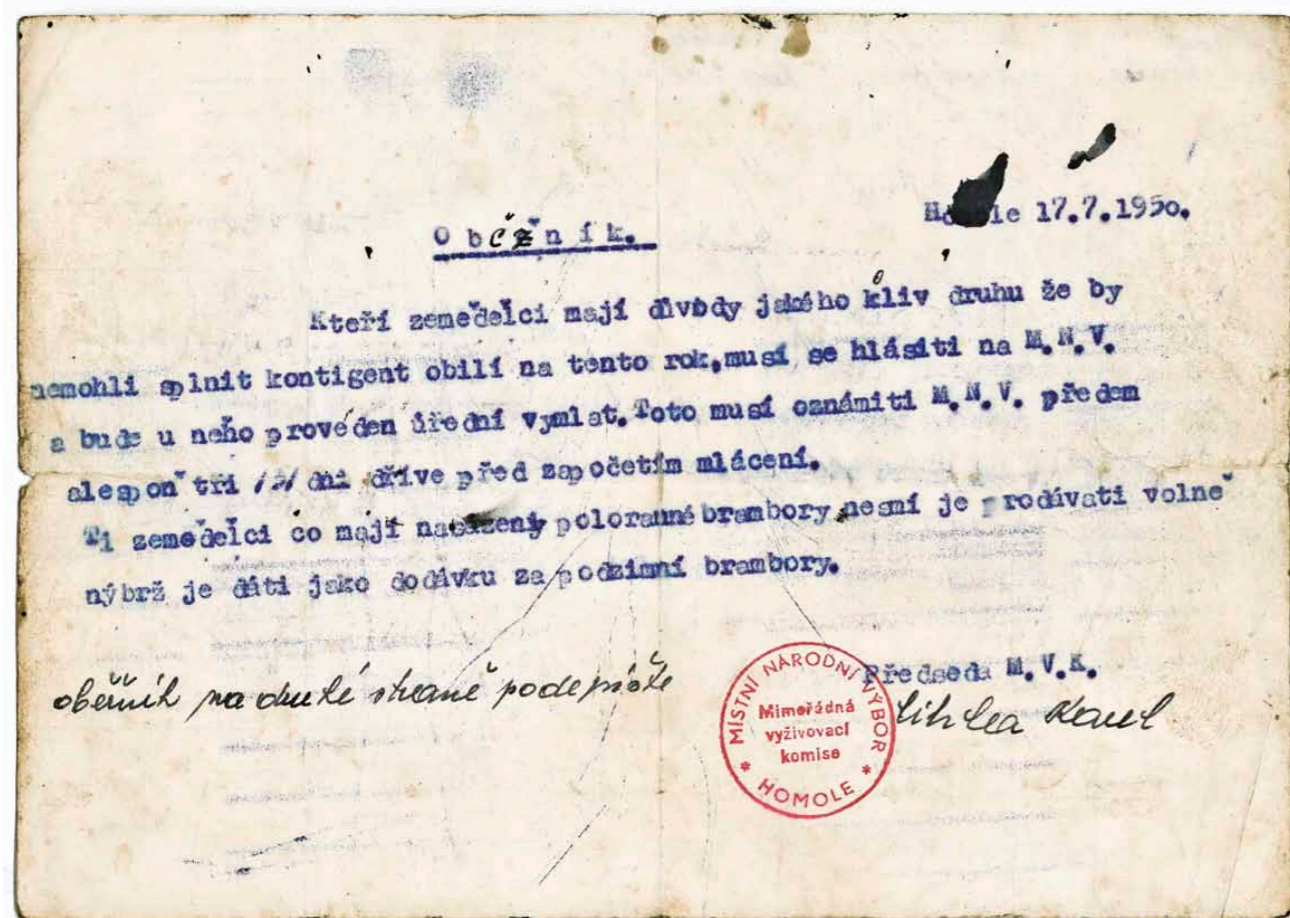 Homole 17.7.1950.
Občžník.
Kteří zemědělci mají důvody jakého kliv druhu že by
nemohli splnit kontigent obilí na tento rok,musí se hlásiti na M.N.V.
a bude u něho provéden úřední výmlat.Toto musí oznámiti M.N.V. předem
alespoň tři /3/ dni dříve před započetím mlácení.
Ti zemědělci co mají nasázený poloranné brambory nesmí je prodávati volně
nýbrž je dáti jako dodávku za podzimní brambory.
oběžník na druhé straně podepište
Předseda M.V.K.
Karel
MÍSTNÍ NÁRODNÍ VÝBOR
Mimořádná
vyživovací
komise
* HOMOLE *